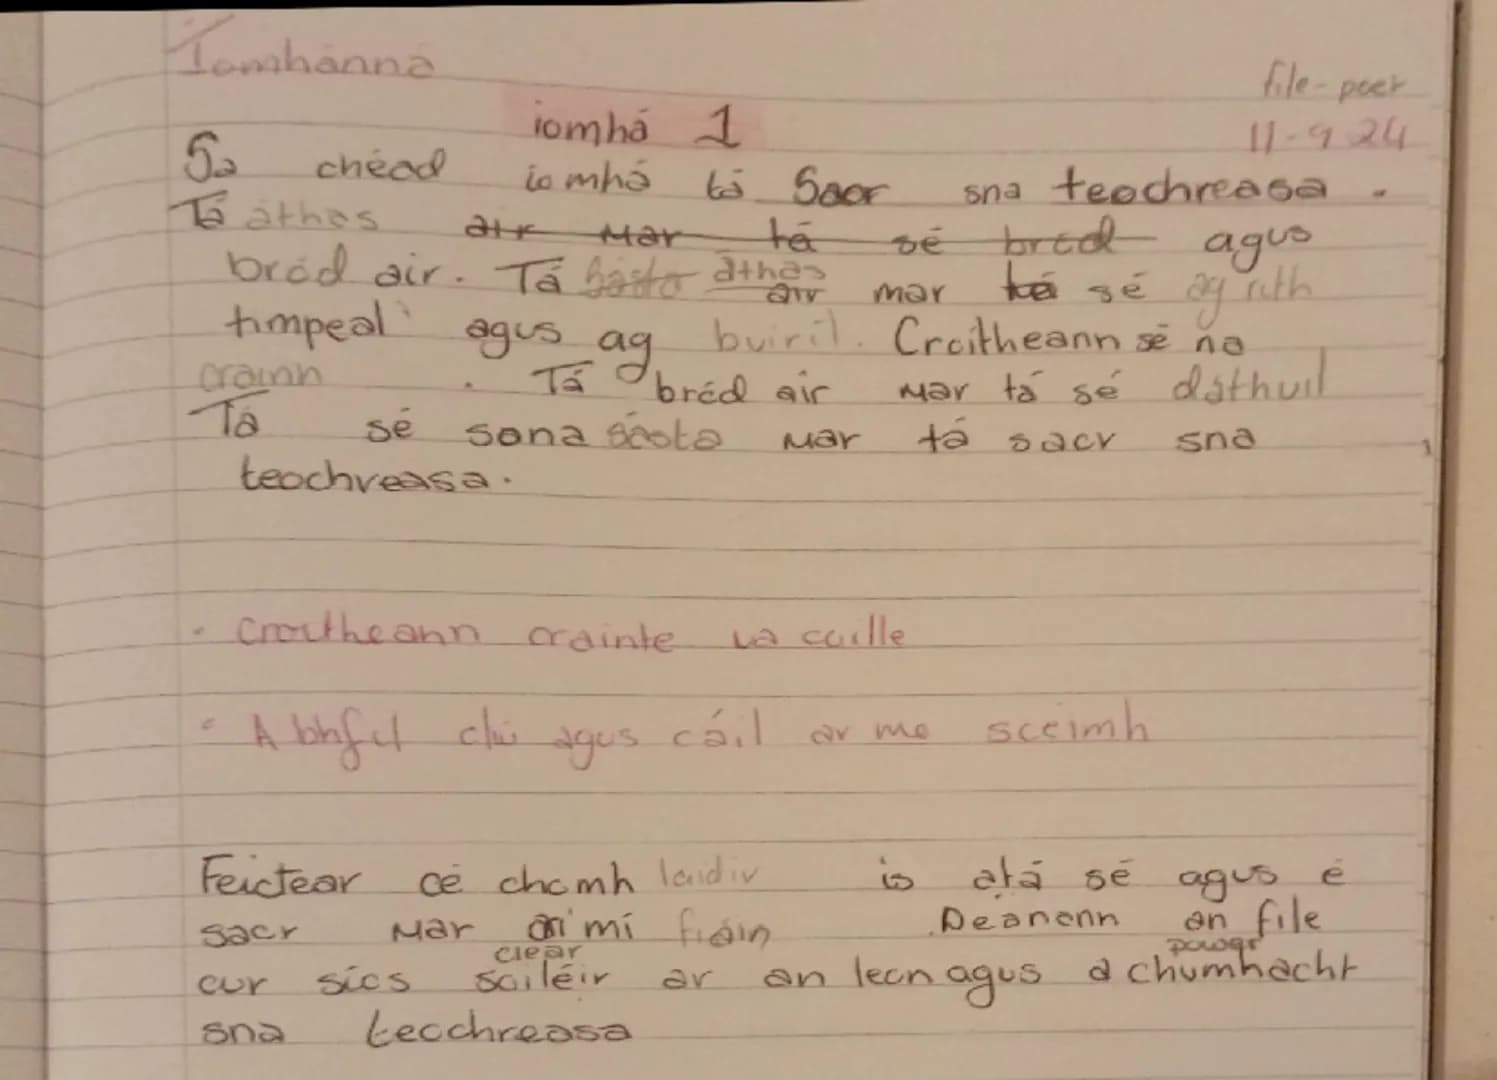 Íomhánna
file - poet
iomhá 1
11-9-24
Sa chéad iomhá tá Saor sna teochreasa.
Tá áthas air mar tá sé bród agus
bród air. Tá sásta áthas air mar tá sé ag rith
timpeal agus ag buiril. Croitheann sé na
crainn. Tá bród air mar tá sé dathuil
Tá sé sona sásta mar tá saor sna
teochreasa.
. Croitheann crainte na coille
. A bhfuil clú agus cáil ar mo sceimh
Feictear cé chomh laidir is atá sé agus é
saor mar ainmí fiáin. Deanann an file
clear power
cur síos soiléir ar an leon agus a chumhacht
sna teochreasa